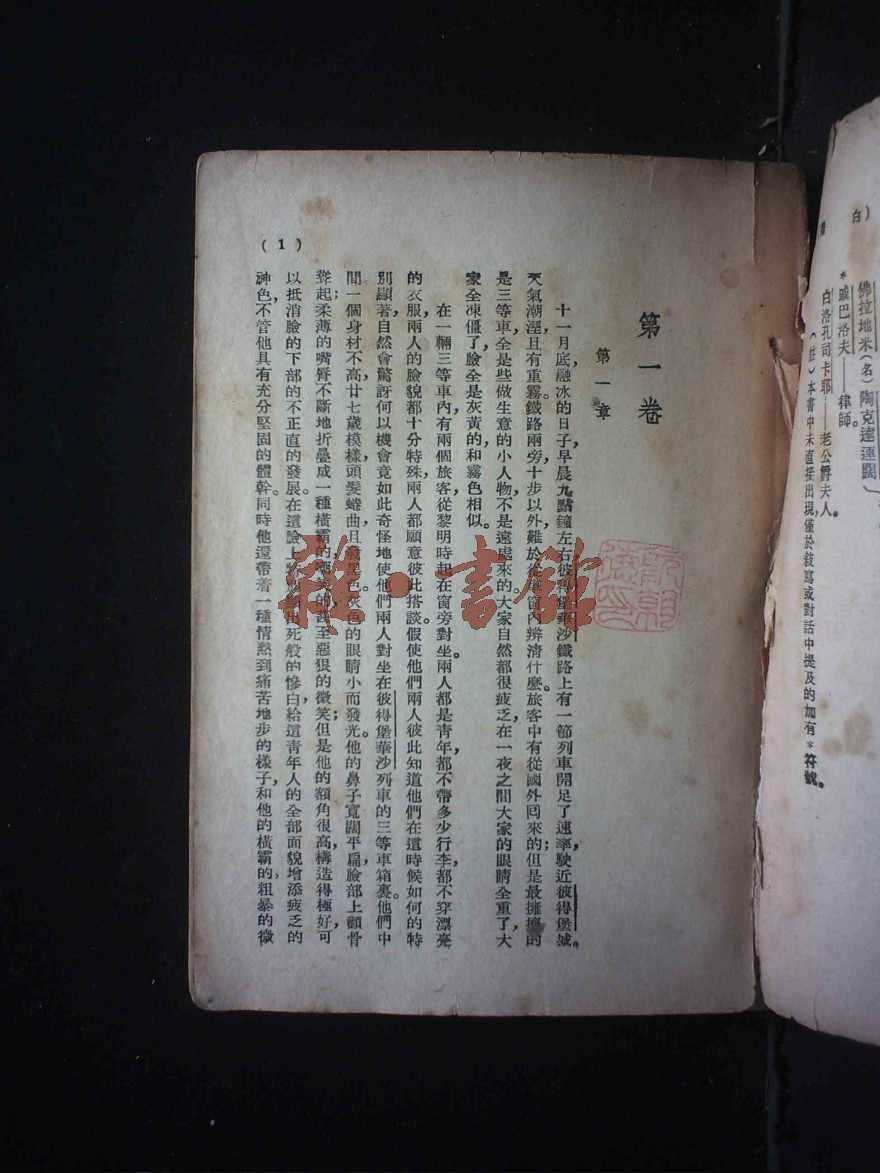 白）
佛拉地米（名）陶克達連闊）
*戚巴洛夫——律師。
白洛孔司卡耶——老公爵夫人。
（註）本書中未直接出現，僅於敍寫或對話中提及的加有*符號。
第一卷
第一章
十一月底，融冰的日子，早晨九點鐘左右，彼得堡華沙鐵路上有一節列車開足了速率，駛近彼得堡城。
天氣潮溼，且有重霧。鐵路兩旁十步以外，難於從車窗內辨清什麼。旅客中有從國外回來的；但是最擁擠的
是三等車，全是些做生意的小人物，不是遠處來的。大家自然都很疲乏，在一夜之間大家的眼睛全重了，大
家全凍僵了，臉全是灰黃的，和霧色相似。
在一輛三等車內，有兩個旅客，從黎明時起在窗旁對坐。兩人都是青年，都不帶多少行李，都不穿漂亮
的衣服，兩人的臉貌都十分特殊，兩人都願意彼此搭談。假使他們兩人彼此知道他們在這時候如何的特
別顯著，自然會驚訝何以機會竟如此奇怪地使他們兩人對坐在彼得堡華沙列車的三等車箱裏。他們中
間一個身材不高，廿七歲模樣，頭髮蜷曲，且發黑色，灰色的眼睛小而發光。他的鼻子寬闊平扁，臉部上顴骨
聳起；柔薄的嘴脣不斷地折疊成一種橫霸的，的，甚至惡狠的微笑；但是他的額角很高，構造得極好，可
以抵消臉的下部的不正直的發展。在這臉上特別出死般的慘白，給這青年人的全部面貌增添疲乏的
神色，不管他具有充分堅固的體幹。同時他還帶着一種情熱到痛苦地步的樣子，和他的橫霸的，粗暴的微
（1）
雜·書館